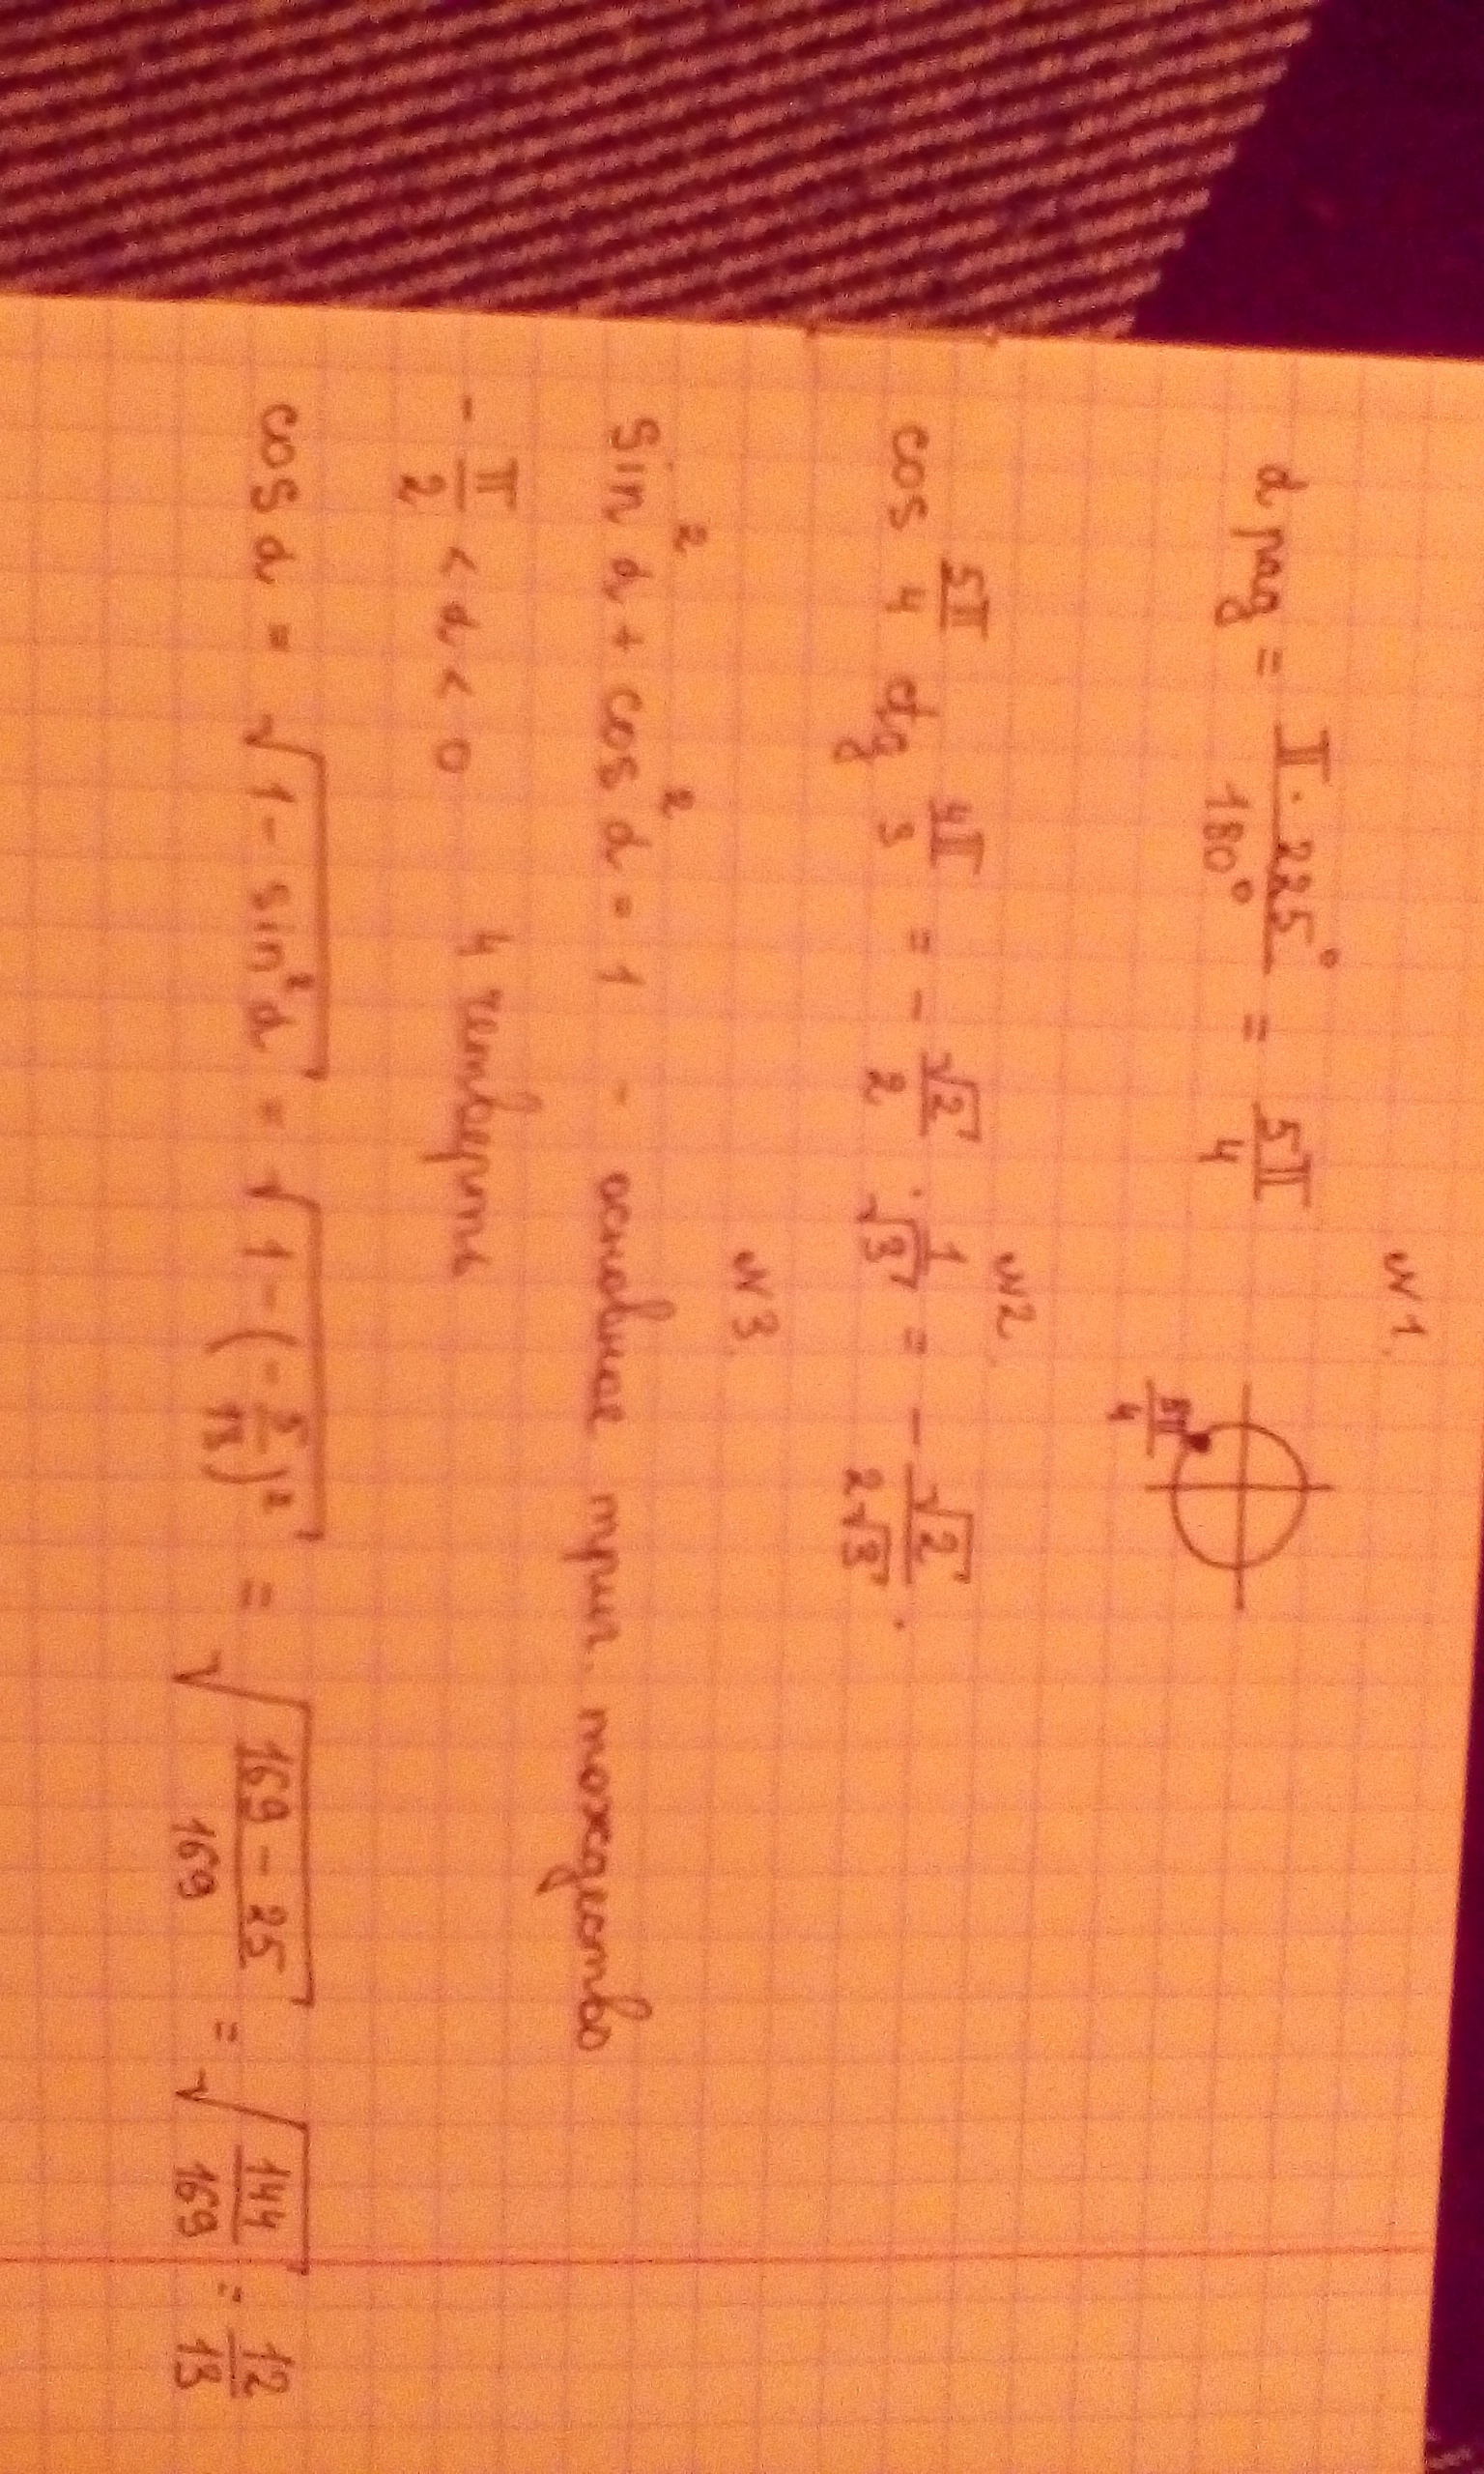 N1.
α рад = π · 225° / 180° = 5π/4
5π/4
N2.
cos 5π/4 ctg 4π/3 = - √2/2 · 1/√3 = - √2/2√3 .
N3.
sin² α + cos² α = 1 - основное триг. тождество
- π/2 < α < 0 4 четверти
cos α = √(1 - sin² α) = √(1 - (- 5/13)²) = √(169 - 25 / 169) = √(144/169) = 12/13